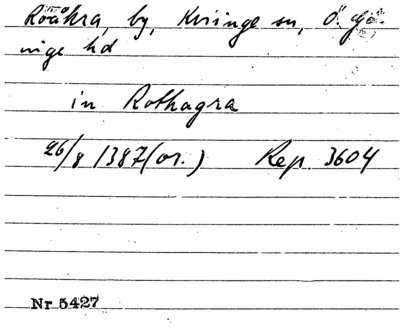 Roåkra, by, Kviinge sn, Ö. Gö-
inge hd
in Rothagra
26/8 1387 (or.) Rep. 3604
Nr 5427